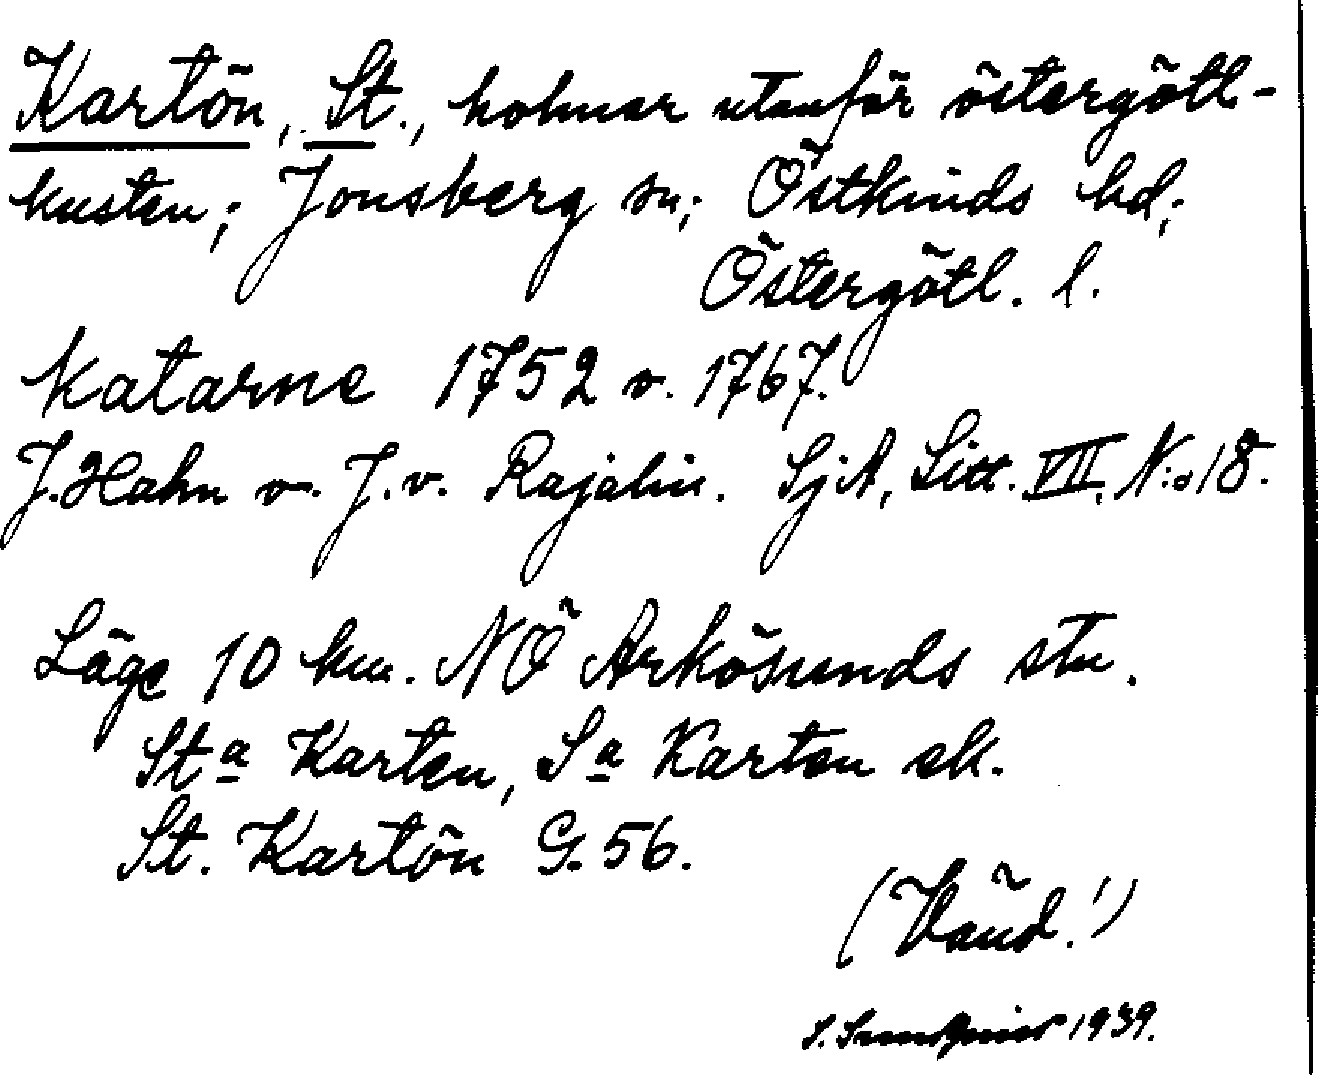 Kartön, St., holmar utanför östergötl-
kusten; Jonsberg sn; Östkinds hd;
Östergötl. l.
Katarne 1752 o. 1767.
J. Hahn o. J. v. Rajalin. SjA, Litt. VII, N:o 18.
Läge 10 km. NÖ Arkösunds stn.
Sta Karten, Sa Karten ek.
St. Kartön G. 56.
(Vänd!)
S. Sundquist 1939.